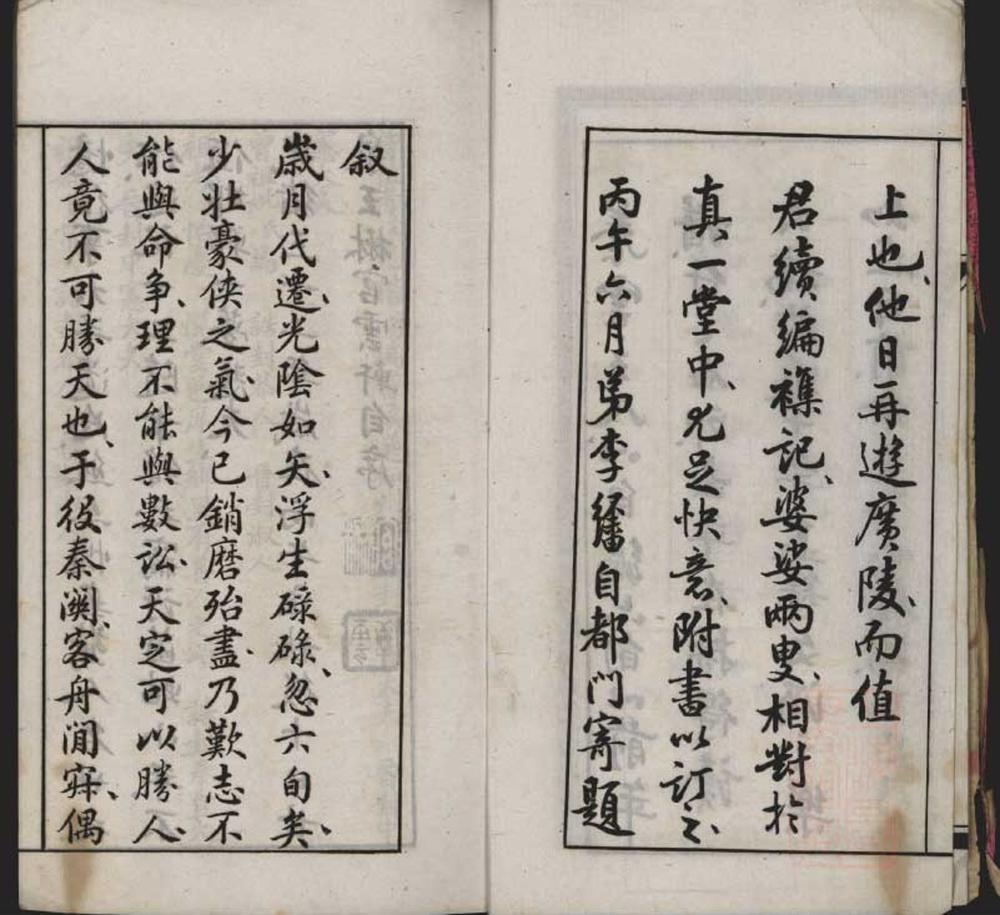 上也、他日再遊廣陵、而值
君續編襍記、婆娑兩叟、相對於
真一堂中、尤足快意、附書以訂之、
丙午六月弟李經自都門寄題
叙
歲月代遷、光陰如矢、浮生碌碌、忽六旬矣、
少壯豪俠之氣、今已銷磨殆盡、乃歎志不
能與命争、理不能與數訟、天定可以勝人、
人竟不可勝天也、于役秦淵、客舟閒寂、偶